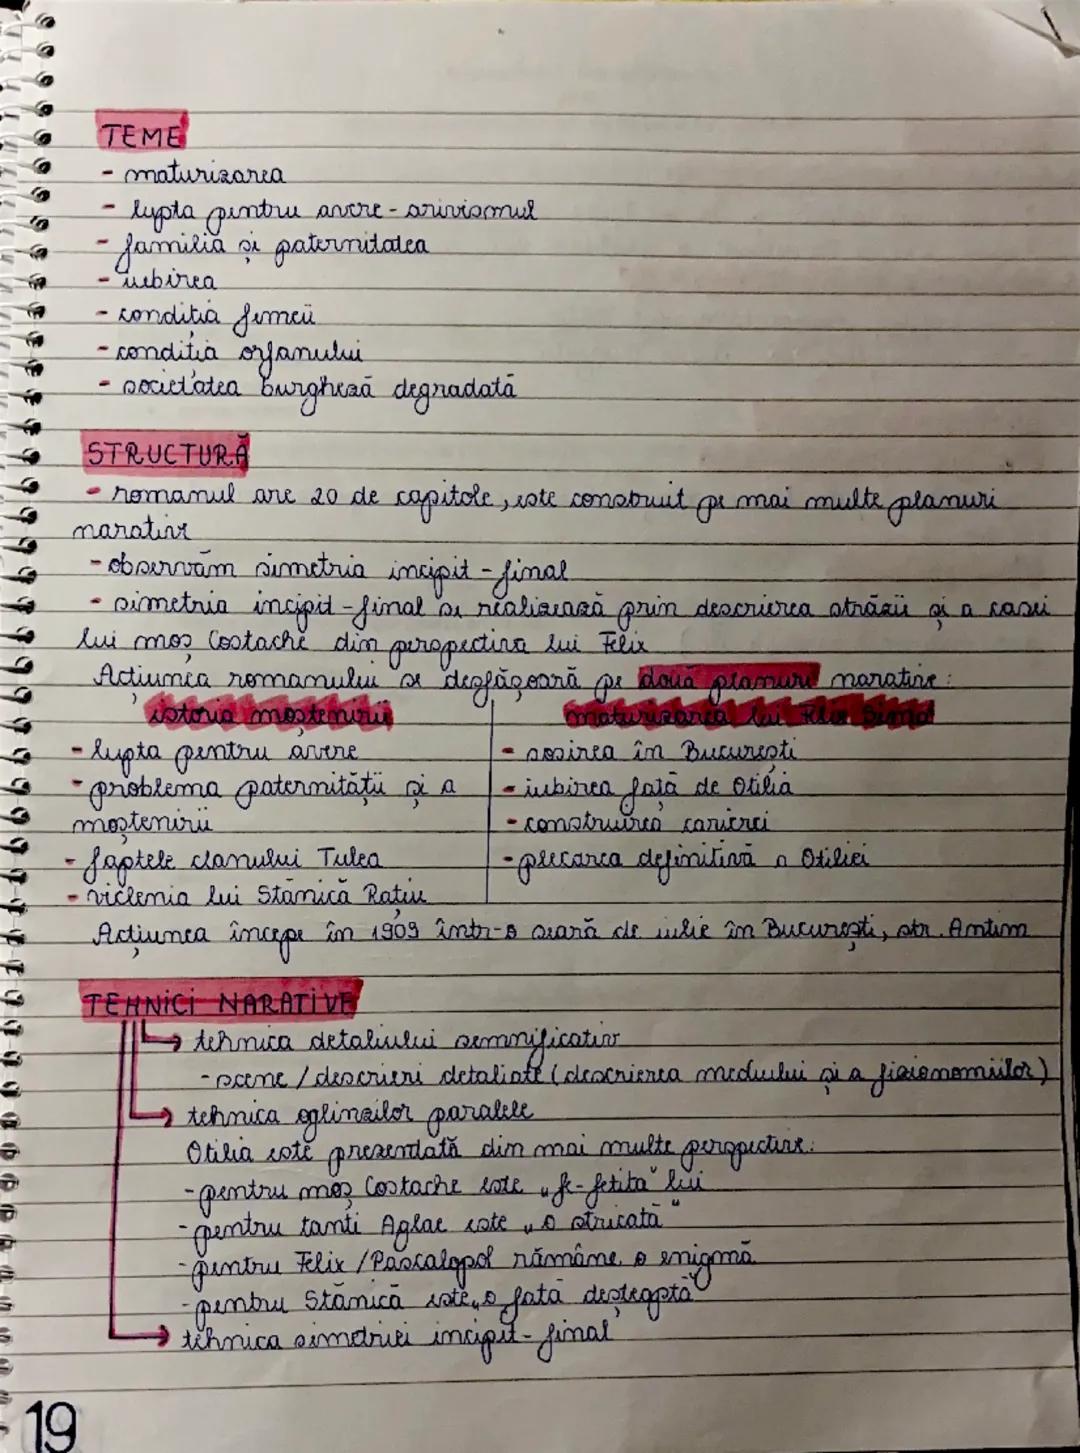 TEME
- maturizarea
- lupta pentru avere - arivismul
- familia și paternitatea
- iubirea
- condiția femeii
- condiția orfanului
- societatea burgheză degradată
STRUCTURĂ
- romanul are 20 de capitole, este construit pe mai multe planuri
narative
- observăm simetria incipit - final
- simetria incipit - final se realizează prin descrierea străzii și a casei
lui moș Costache din perspectiva lui Felix
Acțiunea romanului se desfășoară pe două planuri narative:
istoria moștenirii
maturizarea lui Felix Sima
- lupta pentru avere
- problema paternității și a
moștenirii
- faptele clanului Tulea
- viclenia lui Stănică Rațiu
- sosirea în București
- iubirea față de Otilia
- construirea carierei
- plecarea definitivă a Otiliei
Acțiunea începe în 1909 într-o seară de iulie în București, str. Antim
TEHNICI NARATIVE
tehnica detaliului semnificativ
- scene / descrieri detaliate (descrierea mediului și a fizionomiilor)
tehnica oglinzilor paralele
Otilia este prezentată din mai multe perspective:
- pentru moș Costache este „fe-fetița" lui
- pentru tanti Aglae este „o stricată"
- pentru Felix / Pascalopol rămâne o enigmă
- pentru Stănică este „o fată deșteaptă"
tehnica simetriei incipit - final
19